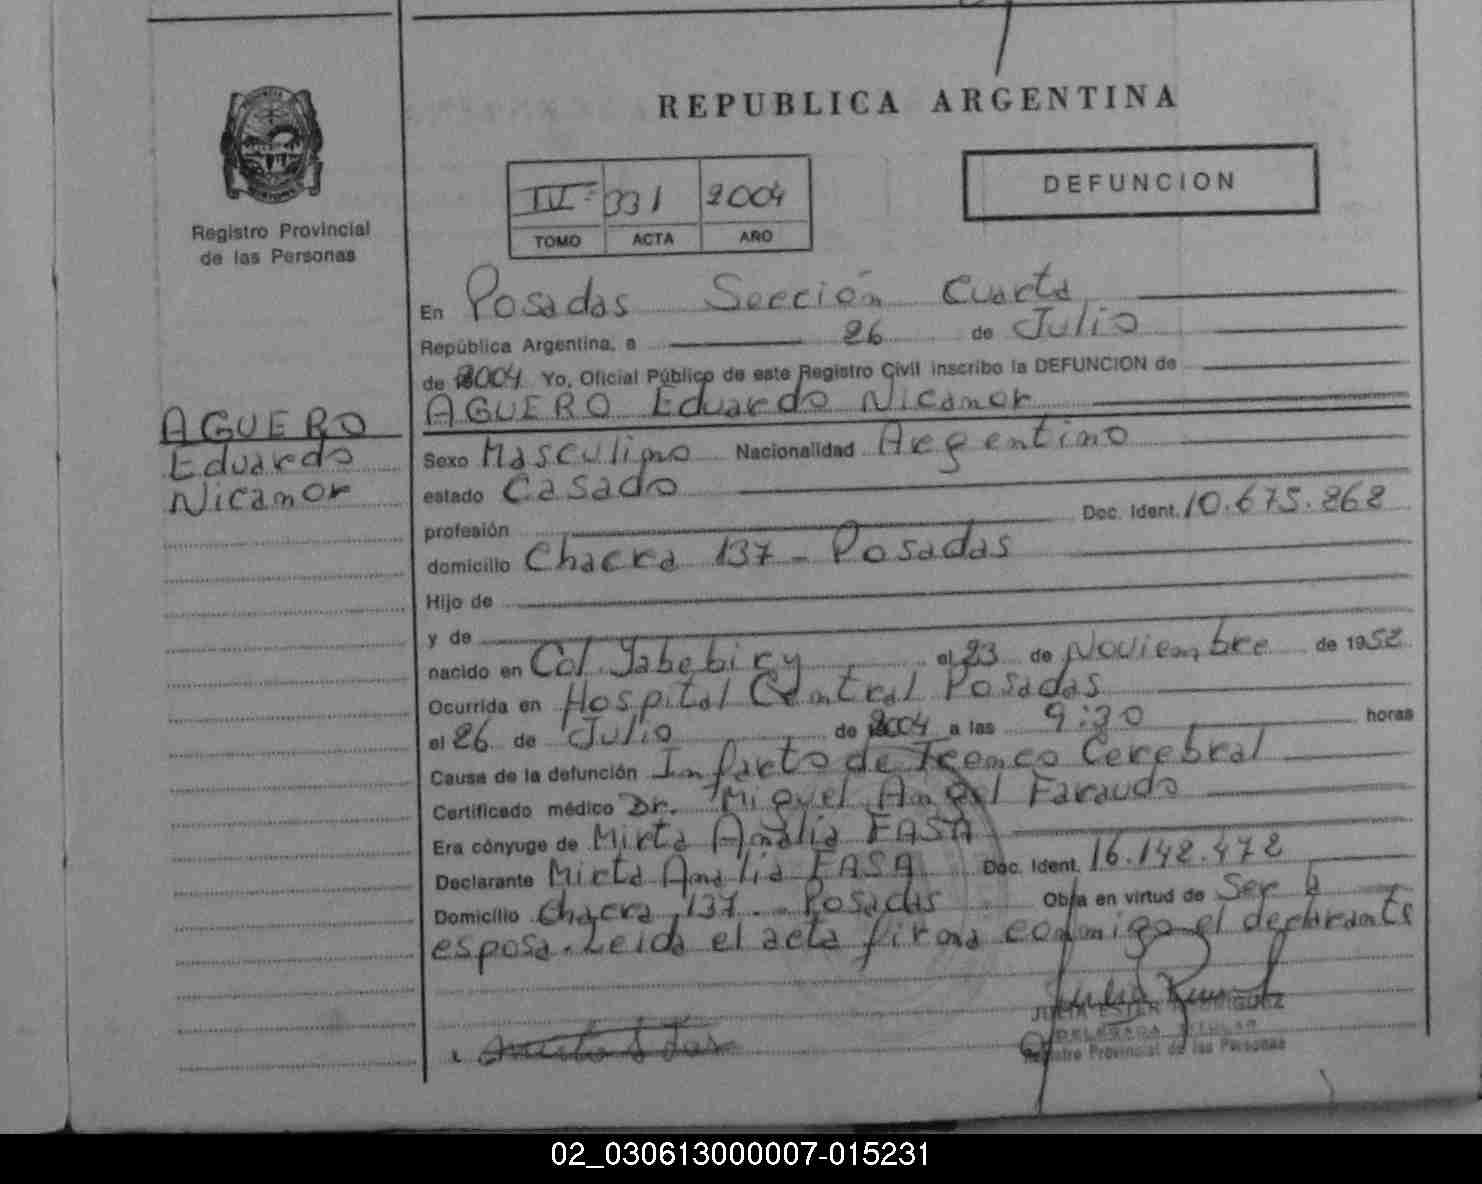 REPUBLICA ARGENTINA
DEFUNCION
IV 331 2004
TOMO ACTA AÑO
Registro Provincial
de las Personas
AGUERO
Eduardo
Nicanor
En Posadas Sección Cuarta
República Argentina, a 26 de Julio
de 2004 Yo, Oficial Público de este Registro Civil inscribo la DEFUNCION de
AGUERO Eduardo Nicanor
Sexo Masculino Nacionalidad Argentino
estado Casado
profesión Doc. Ident. 10.675.868
domicilio Chacra 137 - Posadas
Hijo de
y de
nacido en Col. Yabebiry el 23 de Noviembre de 1952
Ocurrida en Hospital Central Posadas
el 26 de Julio de 2004 a las 9:30 horas
Causa de la defunción Infarto de Tronco Cerebral
Certificado médico Dr. Miguel Angel Faraudo
Era cónyuge de Mirta Amalia FASA
Declarante Mirta Amalia FASA Doc. Ident. 16.142.472
Domicilio Chacra 137 - Posadas Obra en virtud de Ser la
esposa. Leida el acta firma conmigo el declarante
JULIA ESTER RODRIGUEZ
DELEGADA TITULAR
Registro Provincial de las Personas
02_030613000007-015231